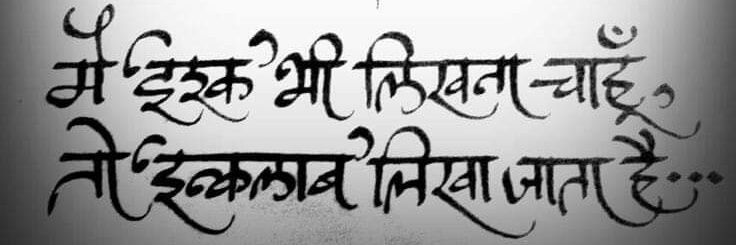 मैं 'इश्क' भी लिखना चाहूँ,
तो 'इन्कलाब' लिखा जाता है...